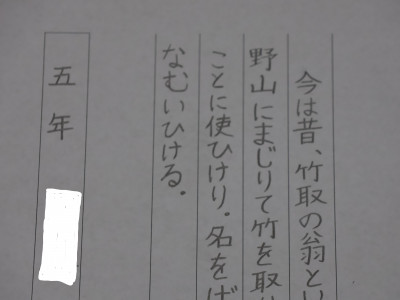 今は昔、竹取の翁とい
野山にまじりて竹を取り
ことに使ひけり。名をば
なむいひける。
五年